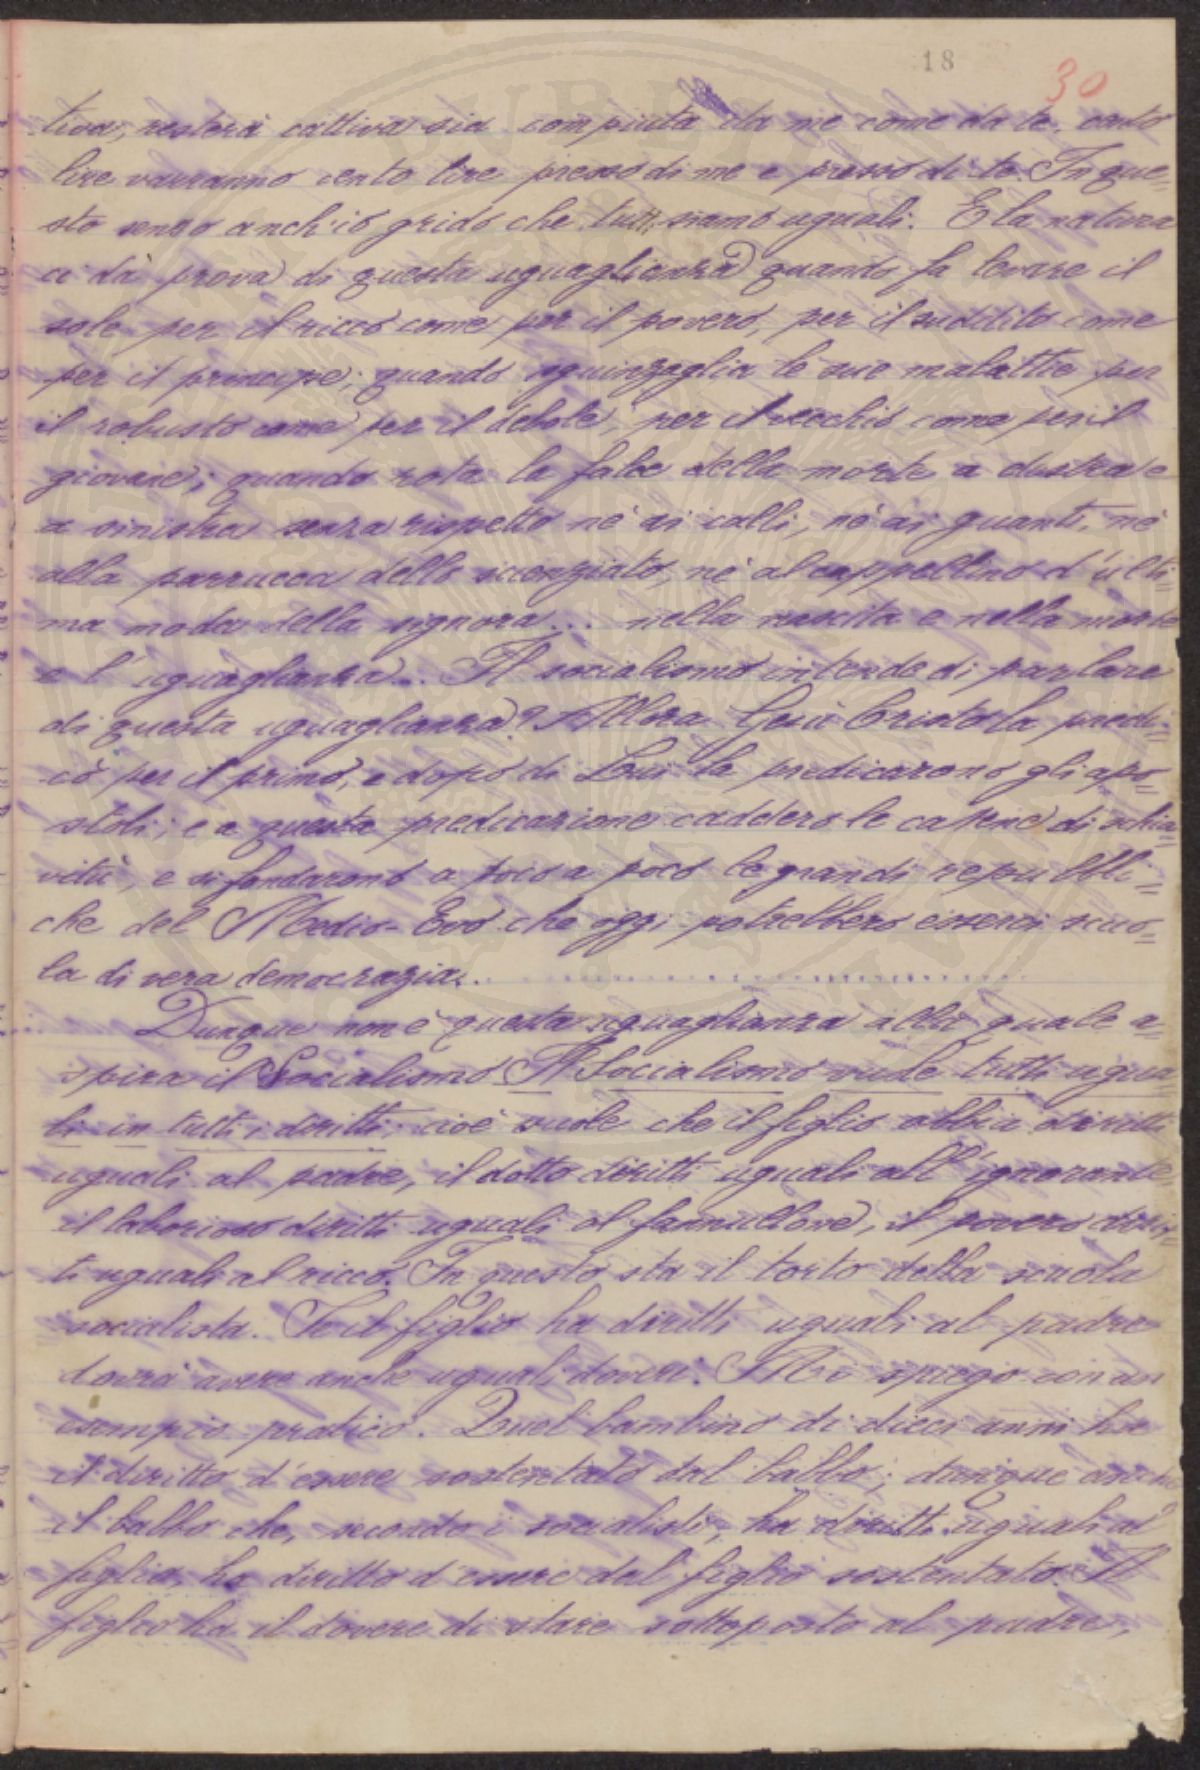 18
30
tiva, resterà cattiva sia compiuta da me come da te. cento
lire varranno cento lire presso di me e presso di te. In que=
sto senso anch'io grido che tutti siamo uguali. E la natura
ci dà prova di questa uguaglianza quando fa levare il
sole per il ricco come per il povero, per il suddito come
per il principe; quando sguinzaglia le sue malattie per
il robusto come per il debole, per il vecchio come per il
giovane; quando rota la falce della morte a destra e
a sinistra senza rispetto nè ai calli, nè ai guanti, nè
alla parrucca dello scienziato, nè al cappellino d'ulti=
ma moda della signora... nella nascita e nella morte
è l'uguaglianza... Il socialismo intende di parlare
di questa uguaglianza? Allora Gesù Cristo la predi=
cò per il primo, e dopo di Lui la predicarono gli apo=
stoli; e a questa predicazione caddero le catene di schia=
vitù, e si fondarono a poco a poco le grandi repubbli=
che del Medio-Evo che oggi potrebbero esserci scuo=
la di vera democrazia..
Dunque non è questa uguaglianza alla quale a=
spira il Socialismo. Il Socialismo vuole tutti ugua=
li in tutti i diritti, cioè vuole che il figlio abbia diritti
uguali al padre, il dotto diritti uguali all'ignorante,
il laborioso diritti uguali al fannullone, il povero dirit=
ti uguali al ricco. In questo sta il torto della scuola
socialista. Se il figlio ha diritti uguali al padre
dovrà avere anche uguali doveri. Mi spiego con un
esempio pratico. Quel bambino di dieci anni ha
il diritto d'essere sostentato dal babbo; dunque anche
il babbo che, secondo i socialisti, ha diritti uguali al
figlio, ha diritto d'essere dal figlio sostentato. Il
figlio ha il dovere di stare sottoposto al padre,